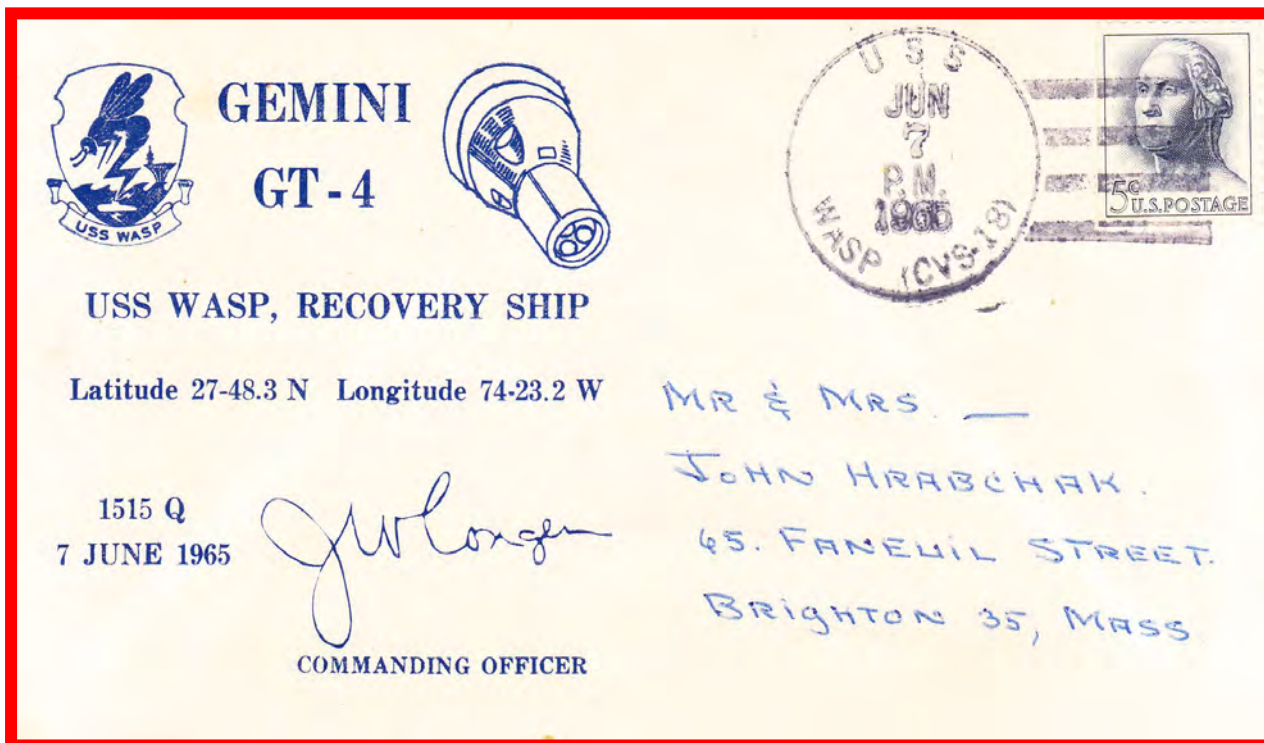 USS WASP
GEMINI
GT-4
USS WASP, RECOVERY SHIP
Latitude 27-48.3 N Longitude 74-23.2 W
1515 Q
7 JUNE 1965
COMMANDING OFFICER
USS
JUN
7
P.M.
1965
WASP (CVS-18)
5c
U.S.POSTAGE
MR & MRS. —
JOHN HRABCHAK.
65. FANEUIL STREET.
BRIGHTON 35, MASS